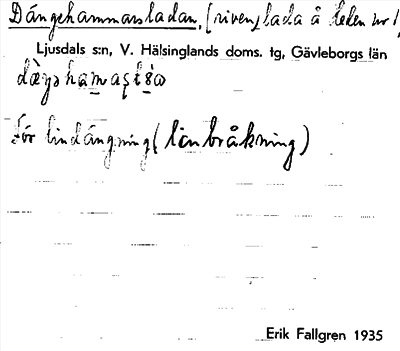 Dängehammarsladan, [riven] lada å Heden nr 1,
Ljusdals s:n, V. Hälsinglands doms. tg, Gävleborgs län
För lindängning (linbråkning)
Erik Fallgren 1935